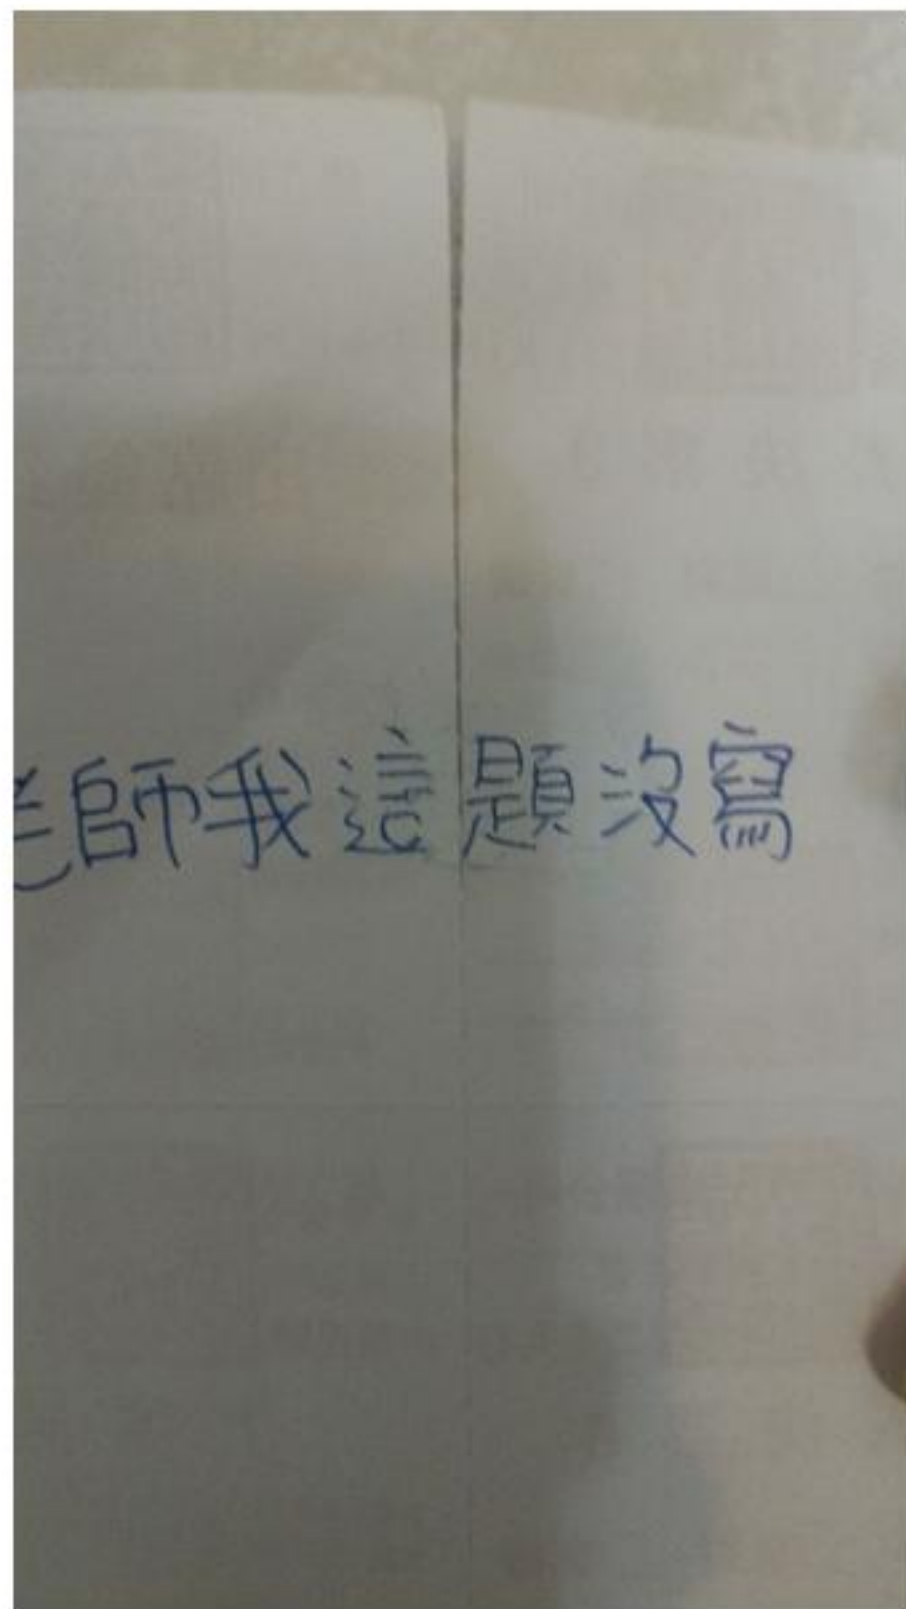 老師我這題沒寫